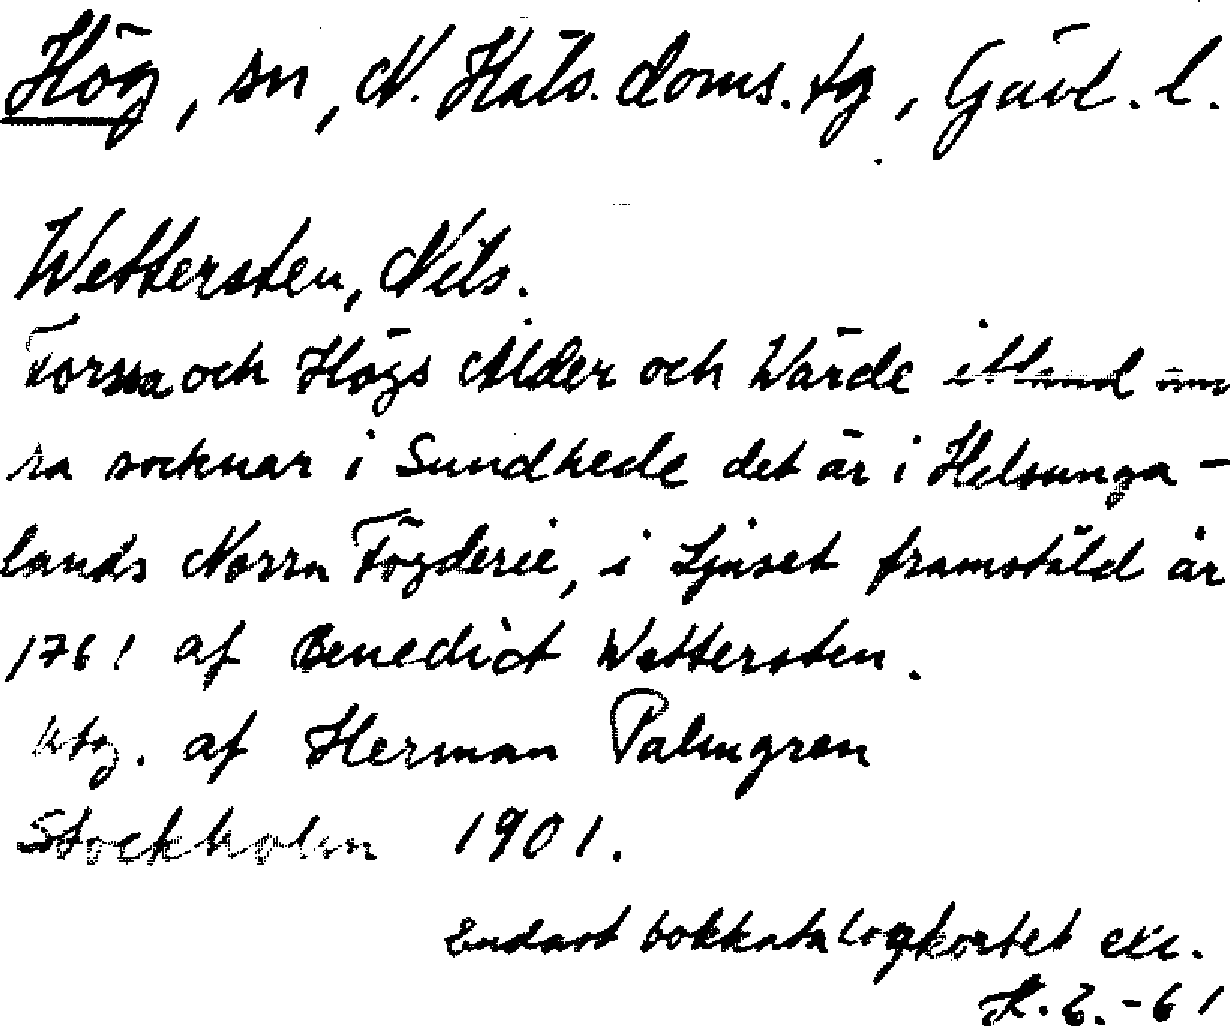 Hög, sn, N. Häls. doms. tg, Gävl. l.
Wettersten, Nils.
Forssa och Högs Ålder och Wärde ibland an
ra socknar i Sundhede det är i Helsinga-
lands Norra Fögderie, i Ljuset framstäld år
1761 af Benedict Wettersten.
Utg. af Herman Palmgren
Stockholm 1901.
Endast bokkatalogkortet exc.
-61